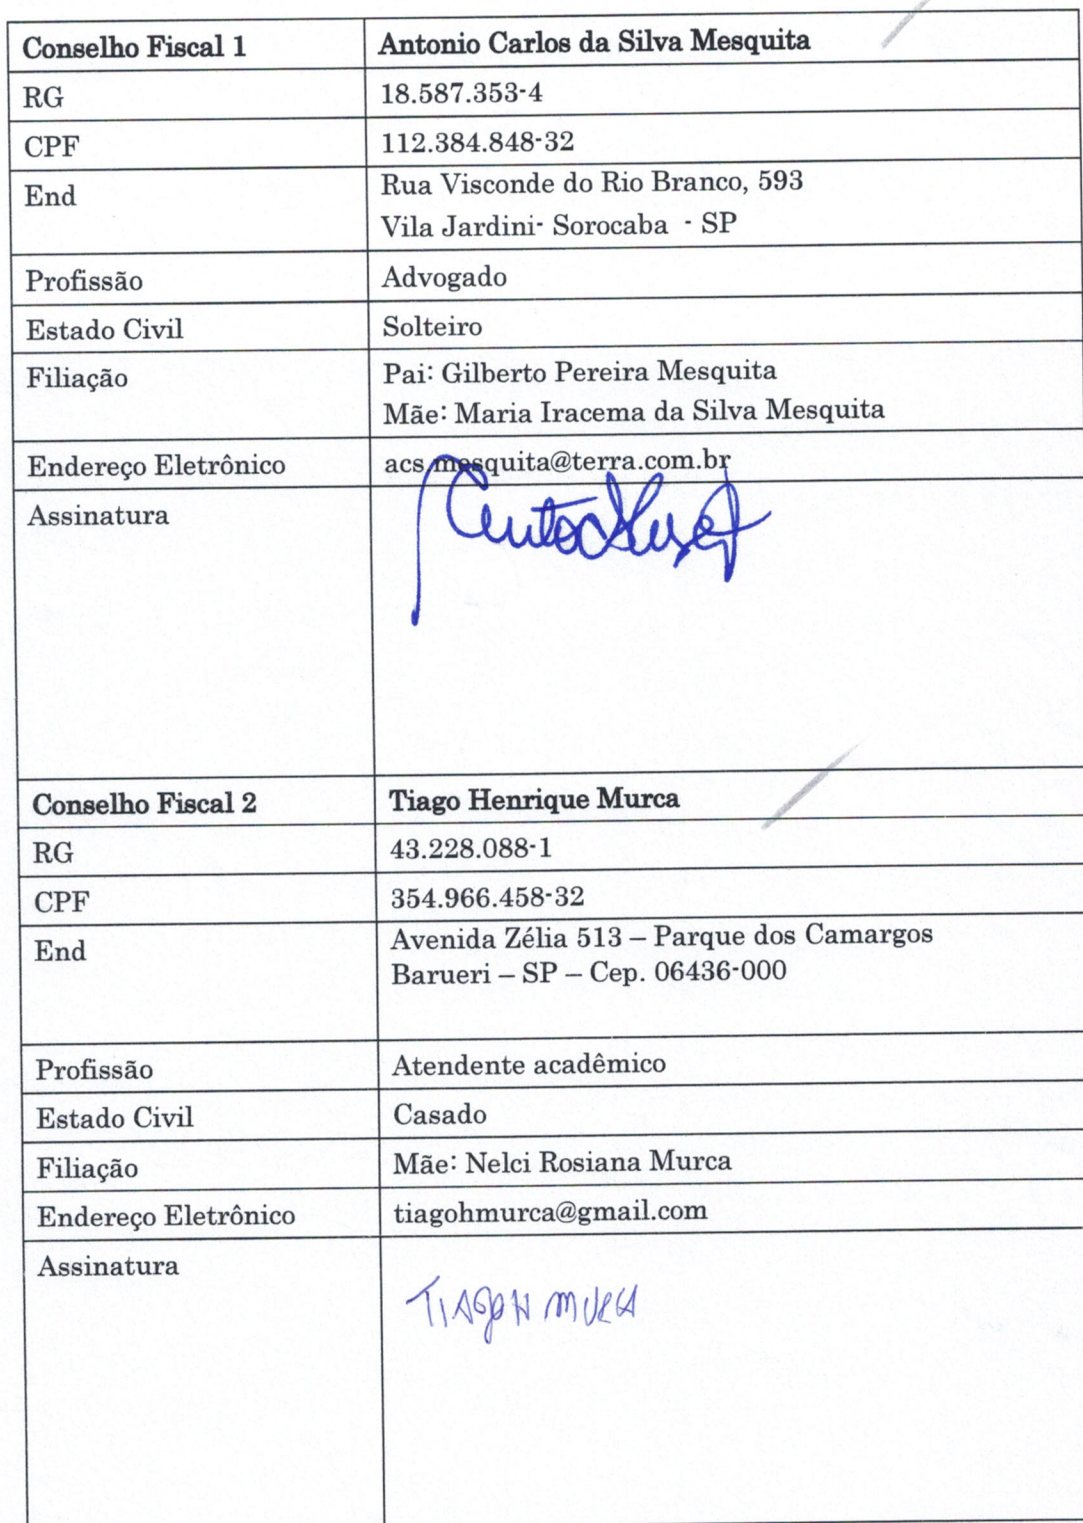 Conselho Fiscal 1 Antonio Carlos da Silva Mesquita
RG 18.587.353-4
CPF 112.384.848-32
End Rua Visconde do Rio Branco, 593
Vila Jardini- Sorocaba - SP
Profissão Advogado
Estado Civil Solteiro
Filiação Pai: Gilberto Pereira Mesquita
Mãe: Maria Iracema da Silva Mesquita
Endereço Eletrônico acs.mesquita@terra.com.br
Assinatura
Conselho Fiscal 2 Tiago Henrique Murca
RG 43.228.088-1
CPF 354.966.458-32
End Avenida Zélia 513 – Parque dos Camargos
Barueri – SP – Cep. 06436-000
Profissão Atendente acadêmico
Estado Civil Casado
Filiação Mãe: Nelci Rosiana Murca
Endereço Eletrônico tiagohmurca@gmail.com
Assinatura
TIAGO H MURCA